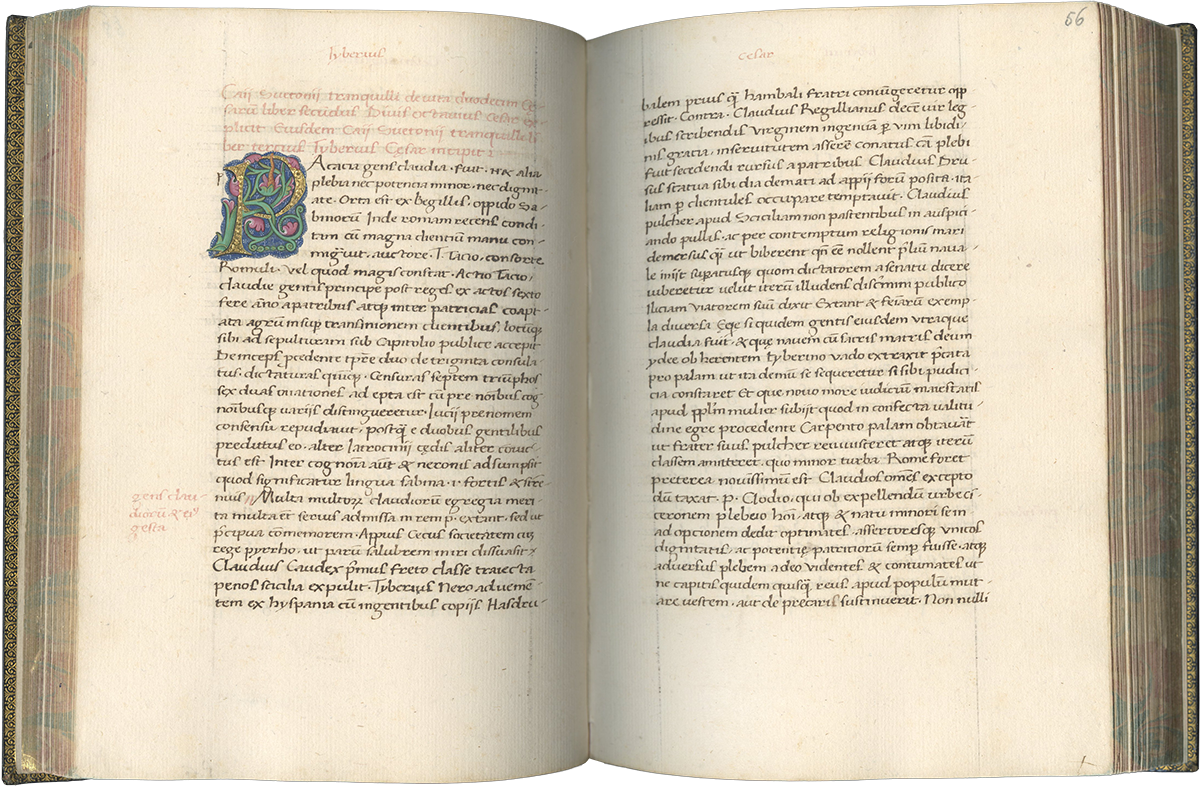 Tyberius
Caii Suetonii tranquilli de vita duodecim Ce-
sarū liber secūndus Divus octavius Cesar ex-
plicit Eiusdem Caii Suetonii tranquilli li-
ber tertius Tyberius Cęsar incipit :
PAtricia gens claudia · fuit · n & alia
plebia nec potencia minor · nec dignit-
ate · Orta est ex Regillis, oppido Sa-
binorū Inde romam recens condi-
tam cū magna clientiū manu con-
migrauit, auctore · T. Tacio, consorte
Romuli · vel quod magis constat · Actio Tacio,
claudie gentis principe post reges exactos sexto
fere año a patribus atqȝ inter patricias coapt-
ata agrū insuꝑ transanionem clientibus, locūqȝ
sibi ad sepulturam sub Capitolio publice accepit
Deinceps ꝓcedente tꝑre duo de triginta consula-
tus, dictaturas quīqȝ · Censuras septem triūphos
sex duas ovationes, ad epta est cū pre noībus cog-
noībusqȝ varijs distingueretur · Lucij prenomem
consensu repudiauit, postqȝ e duobus gentilibus
preditus eo · alter latrocinij cędis alter convic-
tus est Inter cognoīa aūt & neronis adsumpsit
quod significatur lingua sabina · v fortis & stre-
nuus // Multa multoꝝ claudiorū egregia meri-
ta multa et̄ serius admissa in rem p. extant, sed ut
p̄cipua comemorem · Appius Cecus societatem cū
rege pyrrho · ut parū salubrem iniri dissuasit
Claudius Caudex p̄mus freto classe traiecta
penos scicilia expulit · Tyberius Nero advenie-
tem ex hyspania cū ingentibus copijs Hasdru-
gens clau-
diorū & eiꝰ
gesta
56
Cesar
balem prius q̄ Hambali fratri coniūgeretur opp
ressit · Contra · Claudius Regillianus decē vir leg-
ibus scribendis virginem ingenuā ꝑ vim libidi-
nis gracia, in servitutem asserere conatus cā plebi
fuit secedendi rursus a patribus Claudius Dru-
sus statua sibi diademati ad appij forū posita · ita-
liam ꝑ clientules occupare temptauit · Claudius
pulcher apud Siciliam non pastentibus in auspici-
ando pullis, ac per contemptum religionis mari
demersus q̄ ut biberent qn̄ eē nollent p̄liū nava-
le iniit suꝑatusqȝ quom dictatorem a senatu dicere
iuberetur velut iterū illudens discrimini publico
Iliciam viatorem suū dixit Extant & feīarū exemp-
la diversa Eqe si quidem gentis eiusdem utraque
claudia fuit, & que navem cū sacris matris deum
ydee ob herentem tyberino vado extraxit p̄cata
pro palam ut ita demū se sequeretur si sibi pudici-
cia constaret Et que novo more iudiciū maiestatis
apud ppl̄m mulier subijt quod in confecta valitu-
dine egre procedente Carpento palam obtavāt
ut frater suus pulcher reuiuisteret atqȝ iterū
classem amitteret, quo minor turba Rome foret
preterea novissimū est Claudios omēs excepto
dū taxat · p. Clodio, qui ob expellendū urbe ci-
ceronem plebeio hōi · atqȝ & natu minori se in
ad opcionem dedit optimates, assertoresqȝ unicos
dignitatis, ac potentię patriciorū semp̄ fuisse · atqȝ
adversus plebem adeo videntes & contumates ut
ne capitis quidem quisq̄, reus apud populū mut-
are vestem, aut de precaris sustinuerit · Non nulli